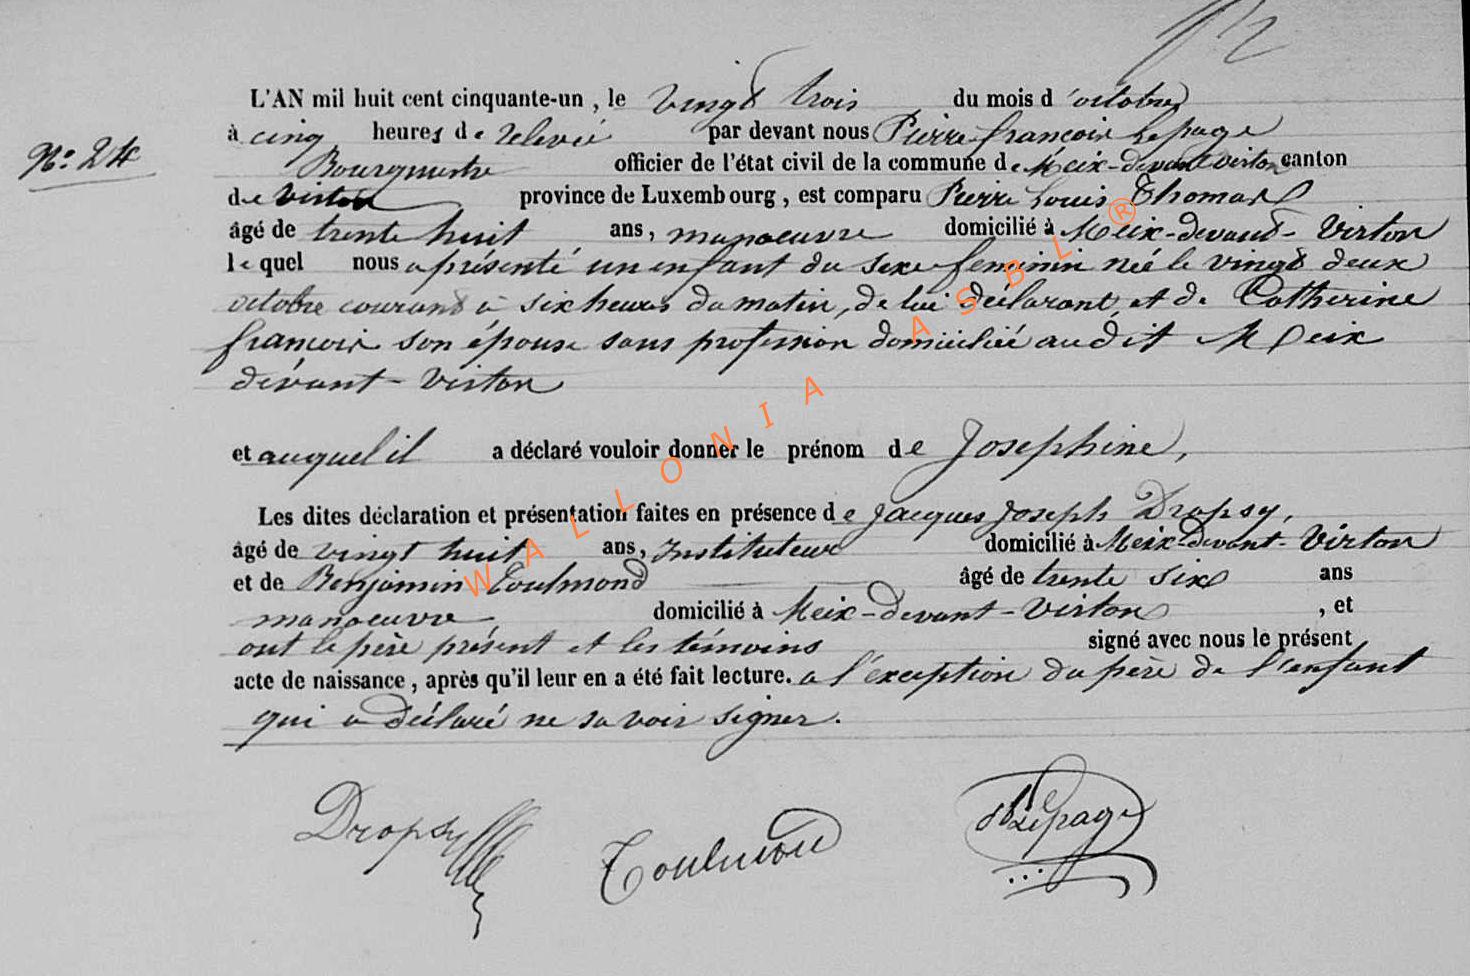 12
L'AN mil huit cent cinquante-un, le vingt trois du mois d'octobre
à cinq heures de relevée par devant nous Pierre françois Lepage
N.º 24
Bourgmestre officier de l'état civil de la commune de Meix-devant virton canton
de virton province de Luxembourg, est comparu Pierre Louis Thomas
âgé de trente huit ans, manoeuvre domicilié à Meix-devant-Virton
lequel nous a présenté un enfant du sexe feminin née le vingt deux
octobre courant à six heures du matin, de lui déclarant et de Catherine
françois son épouse sans profession domiciliée audit Meix
devant-virton
et auquel il a déclaré vouloir donner le prénom de Josephine,
Les dites déclaration et présentation faites en présence de Jacques Joseph Dropsy,
âgé de vingt huit ans, Instituteur domicilié à Meix-devant-Virton
et de Benjamin Toulmond âgé de trente six ans
manoeuvre domicilié à Meix-devant-Virton, et
ont le père présent et les témoins signé avec nous le présent
acte de naissance, après qu'il leur en a été fait lecture. a l'exception du père de l'enfant
qui a déclaré ne savoir signer.
Dropsy Toulmond Lepage
WALLONIA ASBL ®